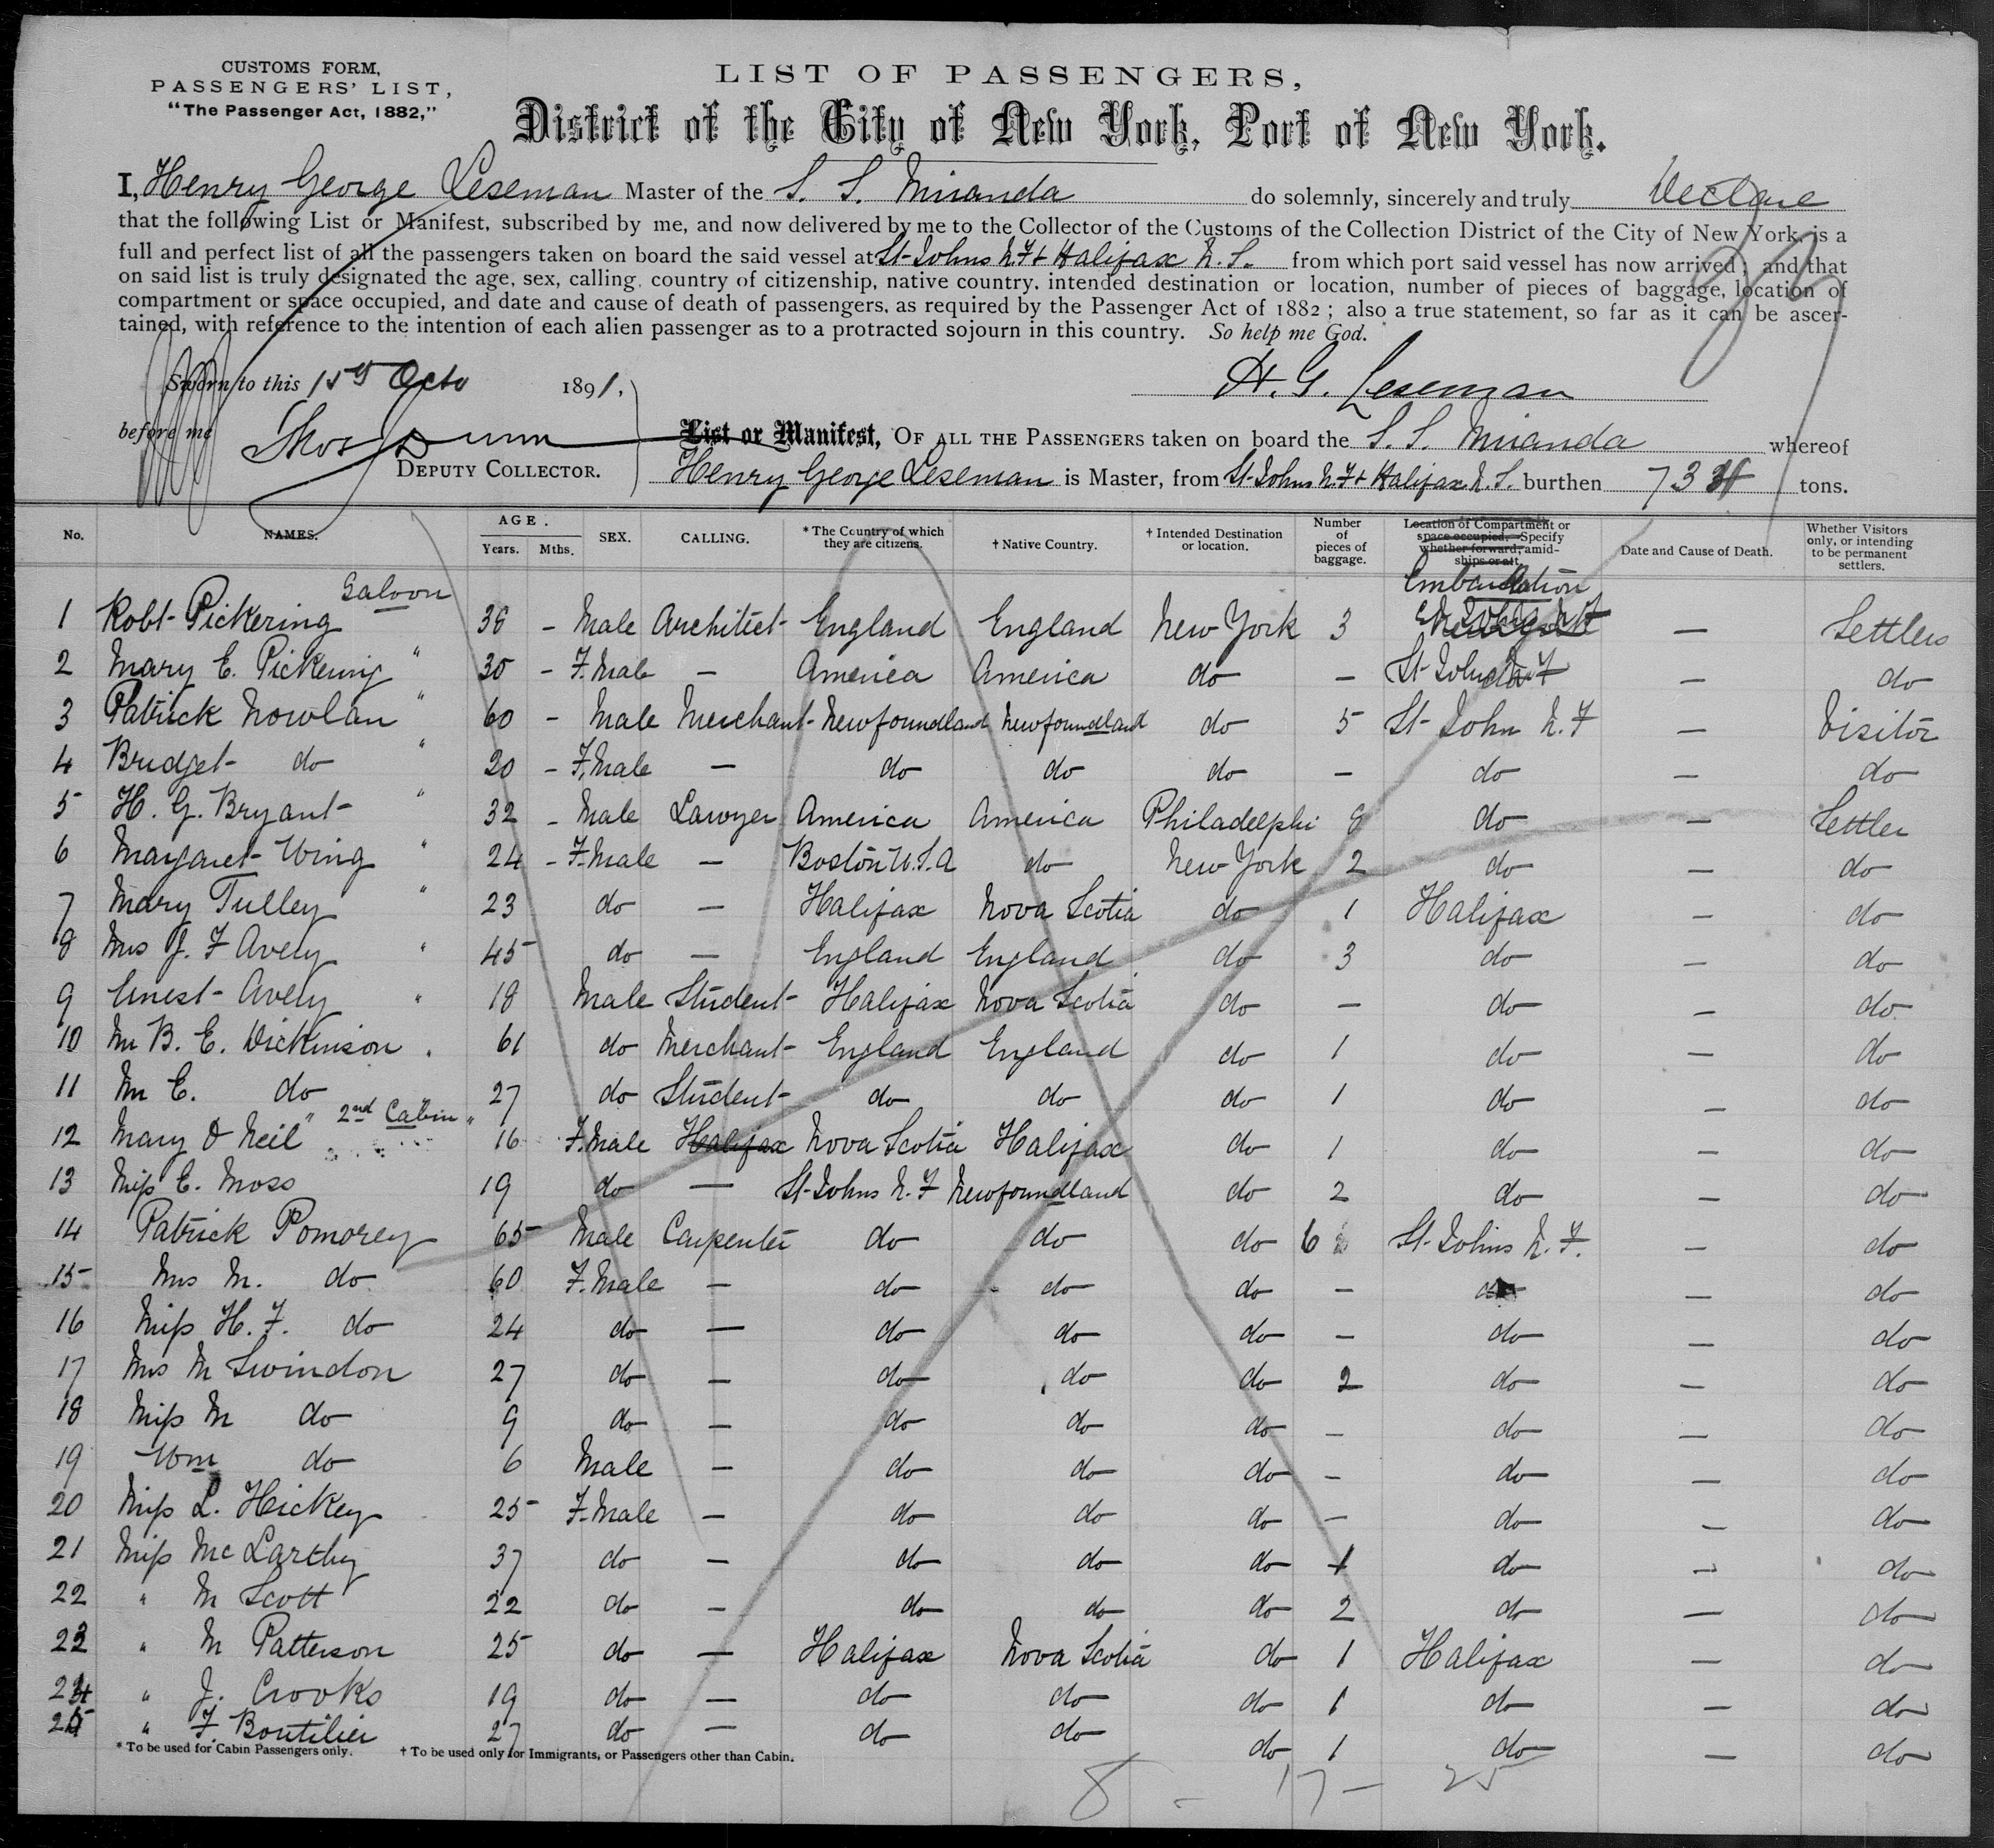 CUSTOMS FORM,
PASSENGERS' LIST,
"The Passenger Act, 1882,"
LIST OF PASSENGERS,
District of the City of New York, Port of New York.
I, Henry George Leseman Master of the S. S. Miranda do solemnly, sincerely and truly Declare
that the following List or Manifest, subscribed by me, and now delivered by me to the Collector of the Customs of the Collection District of the City of New York, is a
full and perfect list of all the passengers taken on board the said vessel at St. Johns N.F & Halifax N.S. from which port said vessel has now arrived; and that
on said list is truly designated the age, sex, calling, country of citizenship, native country, intended destination or location, number of pieces of baggage, location of
compartment or space occupied, and date and cause of death of passengers, as required by the Passenger Act of 1882; also a true statement, so far as it can be ascer-
tained, with reference to the intention of each alien passenger as to a protracted sojourn in this country. So help me God.
Sworn to this 15th Octo 1891, H. G. Leseman
before me Thos Dunn
DEPUTY COLLECTOR.
List or Manifest, OF ALL THE PASSENGERS taken on board the S. S. Miranda whereof
Henry George Leseman is Master, from St. Johns N.F & Halifax N.S. burthen 734 tons.
No. NAMES. AGE. Years. Mths. SEX. CALLING. * The Country of which they are citizens. † Native Country. † Intended Destination or location. Number of pieces of baggage. Location of Compartment or space occupied. Specify whether forward, amidships or aft. Date and Cause of Death. Whether Visitors only, or intending to be permanent settlers.
Saloon Embarkation
1 Robt Pickering 38 – Male Architect England England New York 3 – Settlers
2 Mary E. Pickering " 30 – F.Male – America America do – St Johns N.F – do
3 Patrick Nowlan " 60 – Male Merchant Newfoundland Newfoundland do 5 St John N.F – Visitor
4 Bridget do " 20 – F.Male – do do do – do – do
5 H. G. Bryant " 32 – Male Lawyer America America Philadelphi 8 do – Settler
6 Margaret Wing " 24 – F.Male – Boston U.S.A do New York 2 do – do
7 Mary Tulley " 23 do – Halifax Nova Scotia do 1 Halifax – do
8 Mrs J. F Avery " 45 do – England England do 3 do – do
9 Ernest Avery " 18 Male Student Halifax Nova Scotia do – do – do
10 Mr B. E. Dickinson " 61 do Merchant England England do 1 do – do
11 Mr E. do " 27 do Student do do do 1 do – do
2nd Cabin
12 Mary O Neil 16 F.Male Halifax Nova Scotia Halifax do 1 do – do
13 Miss E. Moss 19 do – St. Johns N.F Newfoundland do 2 do – do
14 Patrick Pomorey 65 Male Carpenter do do do 6 St. Johns N.F. – do
15 Mrs M. do 60 F.Male – do do do – do – do
16 Miss H. F. do 24 do – do do do – do – do
17 Mrs M Swindon 27 do – do do do 2 do – do
18 Miss M do 9 do – do do do – do – do
19 Wm do 6 Male – do do do – do – do
20 Miss L. Hickey 25 F.Male – do do do – do – do
21 Miss McCarthy 37 do – do do do 1 do – do
22 " M Scott 22 do – do do do 2 do – do
23 " M Patterson 25 do – Halifax Nova Scotia do 1 Halifax – do
24 " J. Crooks 19 do – do do do 1 do – do
25 " F. Boutilier 27 do – do do do 1 do – do
* To be used for Cabin Passengers only. † To be used only for Immigrants, or Passengers other than Cabin.
8 – 17 – 25